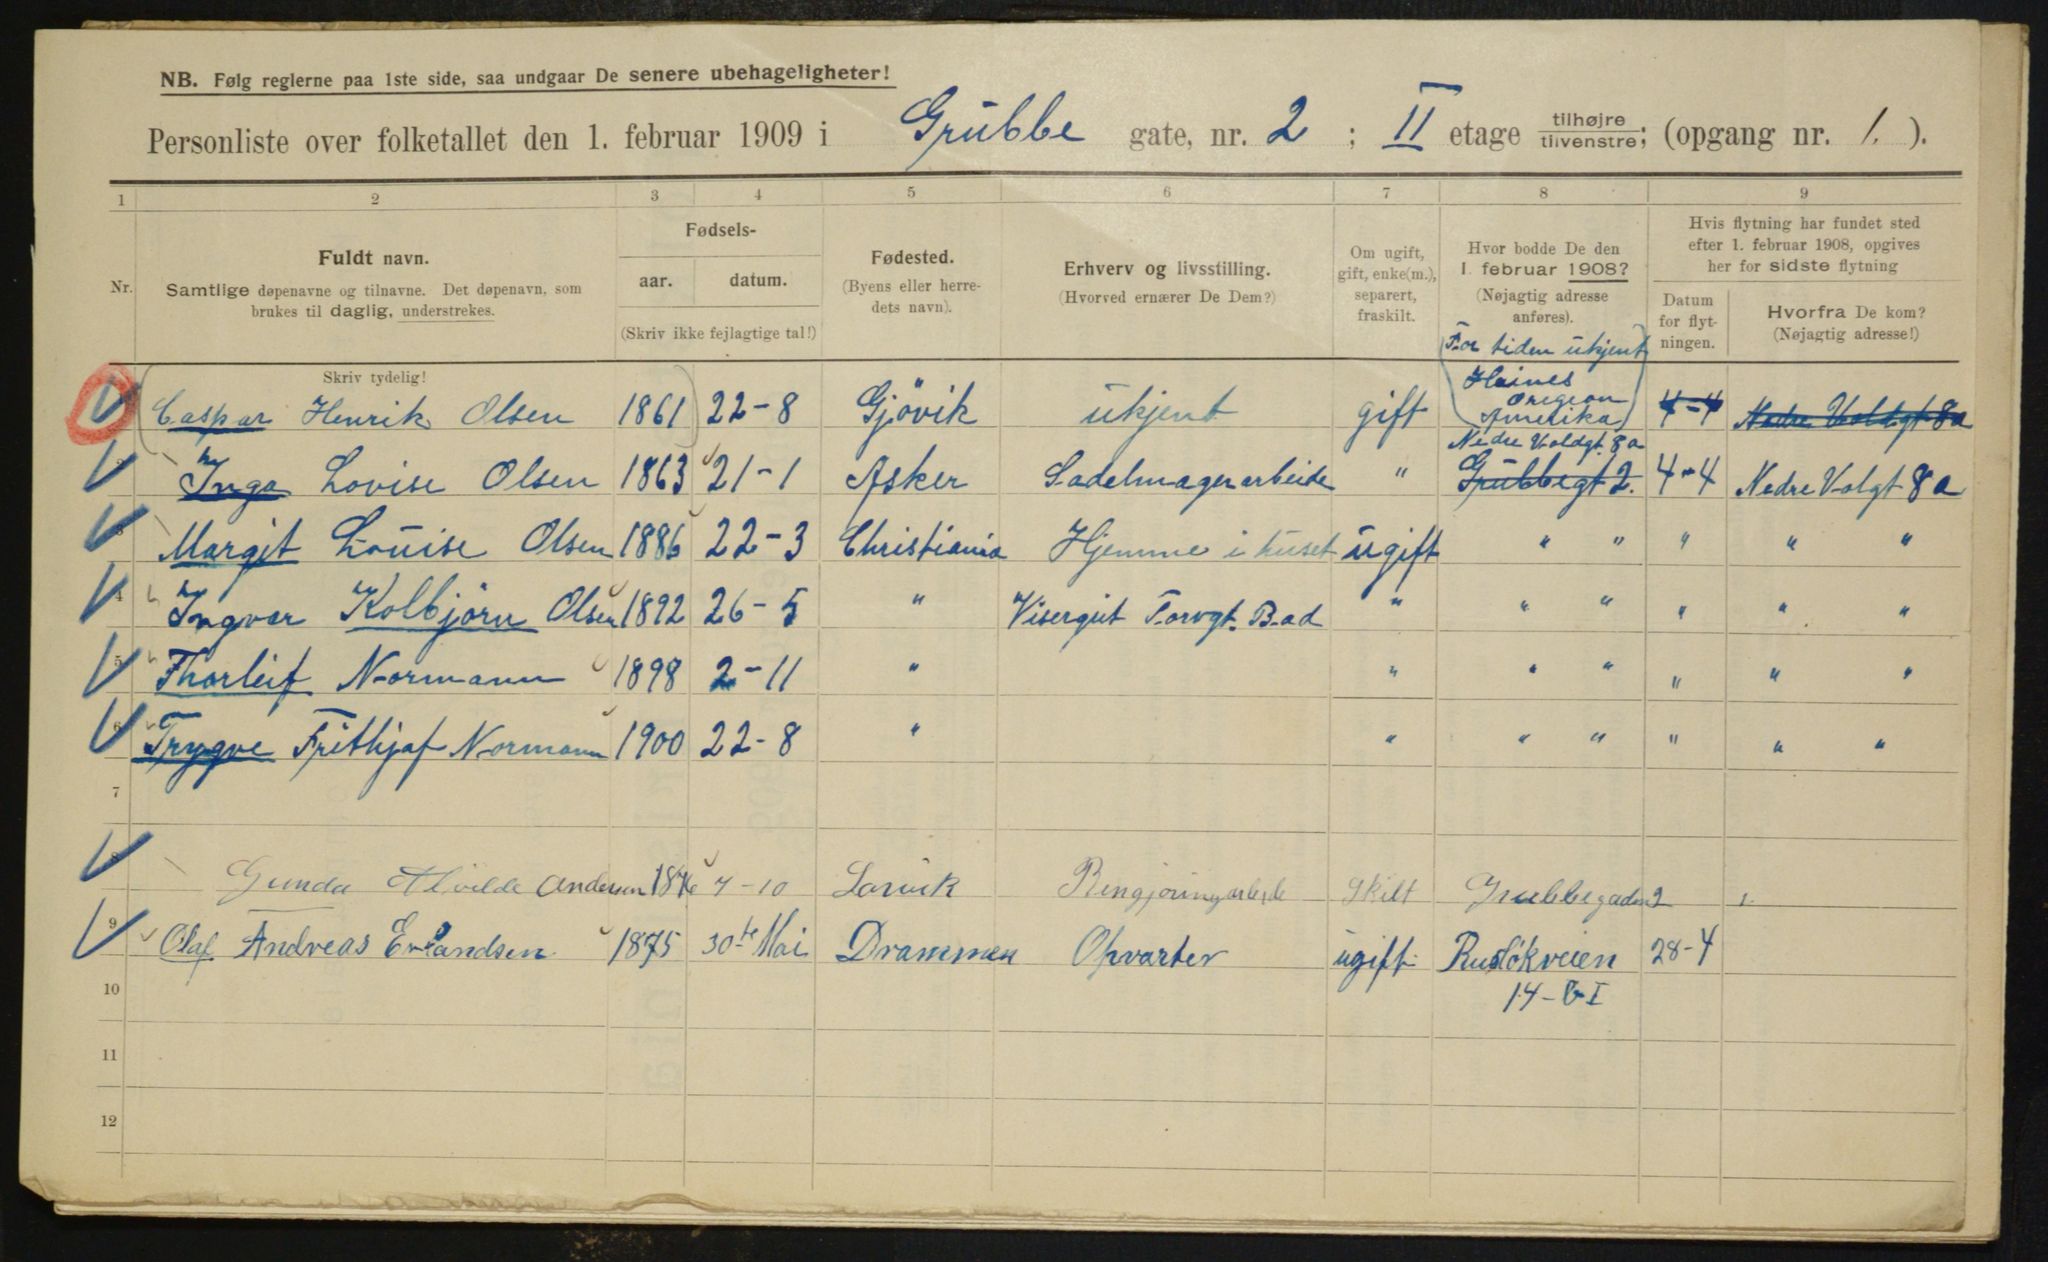 NB. Følg reglerne paa 1ste side, saa undgaar De senere ubehageligheter!
Personliste over folketallet den 1. februar 1909 i Grubbe gate, nr. 2 ; II etage tilhøjre/tilvenstre; (opgang nr. 1. ).
1 2 3 4 5 6 7 8 9
Nr.
Fuldt navn.
Samtlige døpenavne og tilnavne. Det døpenavn, som
brukes til daglig, understrekes.
Skriv tydelig!
Fødsels-
aar. datum.
(Skriv ikke fejlagtige tal!)
Fødested.
(Byens eller herre-
dets navn).
Erhverv og livsstilling.
(Hvorved ernærer De Dem?)
Om ugift,
gift, enke(m.),
separert,
fraskilt.
Hvor bodde De den
1. februar 1908?
(Nøjagtig adresse
anføres).
Hvis flytning har fundet sted
efter 1. februar 1908, opgives
her for sidste flytning
Datum
for flyt-
ningen.
Hvorfra De kom?
(Nøjagtig adresse!)
For tiden ukjent
Haines
Oregion
Amerika
Caspar Henrik Olsen 1861 22-8 Gjövik ukjent gift 4-4 Nedre Voldgt 8a
Nedre Voldgt. 8a
Inga Lovise Olsen 1863 21-1 Asker Sadelmagerarbeide " Grubbegt 2. 4-4 Nedre Volgt 8a
3 Margit Louise Olsen 1886 22-3 Christiania Hjemme i huset ugift " " " " "
4 Ingvar Kolbjörn Olsen 1892 26-5 " Visergut Torvgt. Bad " " " " " "
5 Thorleif Normann 1898 2-11 " " " " " " "
6 Trygve Frithjof Normann 1900 22-8 " " " " " " "
7
8 Gunda Alvilde Andersen 1876 7-10 Larvik Rengjöringarbeide Skilt Grubbegaden 2
9 Olaf Andreas Erlandsen 1875 30te Mai Drammen Opvarter ugift Rusløkveien 28-4
10 14-
11
12